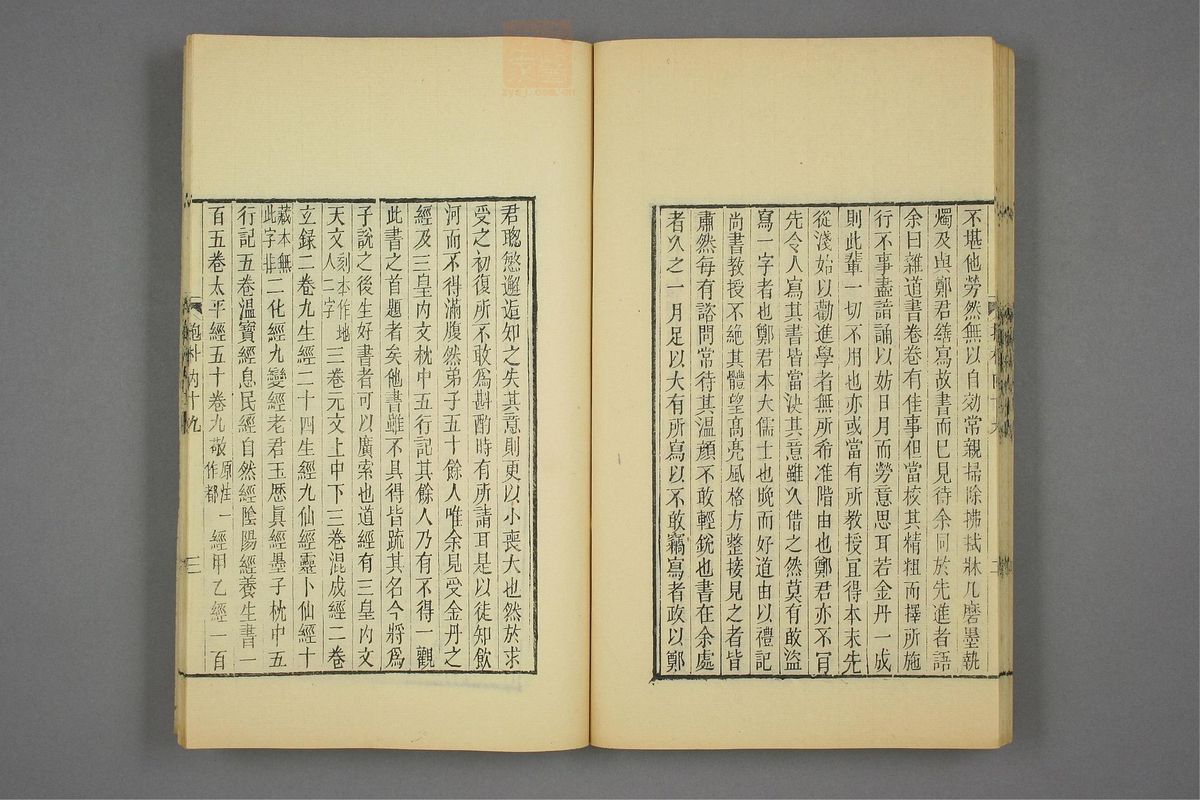 不堪他勞然無以自効常親掃除拂拭牀几磨墨執
燭及與鄭君繕寫故書而已見待余同於先進者語
余曰雜道書卷卷有佳事但當校其精粗而擇所施
行不事盡諳誦以妨日月而勞意思耳若金丹一成
則此輩一切不用也亦或當有所教授宜得本末先
從淺始以勸進學者無所希准階由也鄭君亦不肎
先令人寫其書皆當決其意雖久借之然莫有敢盜
寫一字者也鄭君本大儒士也晚而好道由以禮記
尚書教授不絕其體望高亮風格方整接見之者皆
肅然每有諮問常待其溫顔不敢輕銳也書在余處
者久之一月足以大有所寫以不敢竊寫者政以鄭
二
君聰慜邂逅知之失其意則更以小喪大也然於求
受之初復所不敢爲斟酌時有所請耳是以徒知飲
河而不得滿腹然弟子五十餘人唯余見受金丹之
經及三皇内文枕中五行記其餘人乃有不得一觀
此書之首題者矣他書雖不具得皆疏其名今將爲
子說之後生好書者可以廣索也道經有三皇内文
天文人刻本作地二字三卷元文上中下三卷混成經二卷
立録二卷九生經二十四生經九仙經靈卜仙經十
藏本無此字非二化經九變經老君玉歷眞經墨子枕中五
行記五卷溫寶經息民經自然經陰陽經養生書一
百五卷太平經五十卷九敬原注作都一經甲乙經一百
抱朴内十九
三